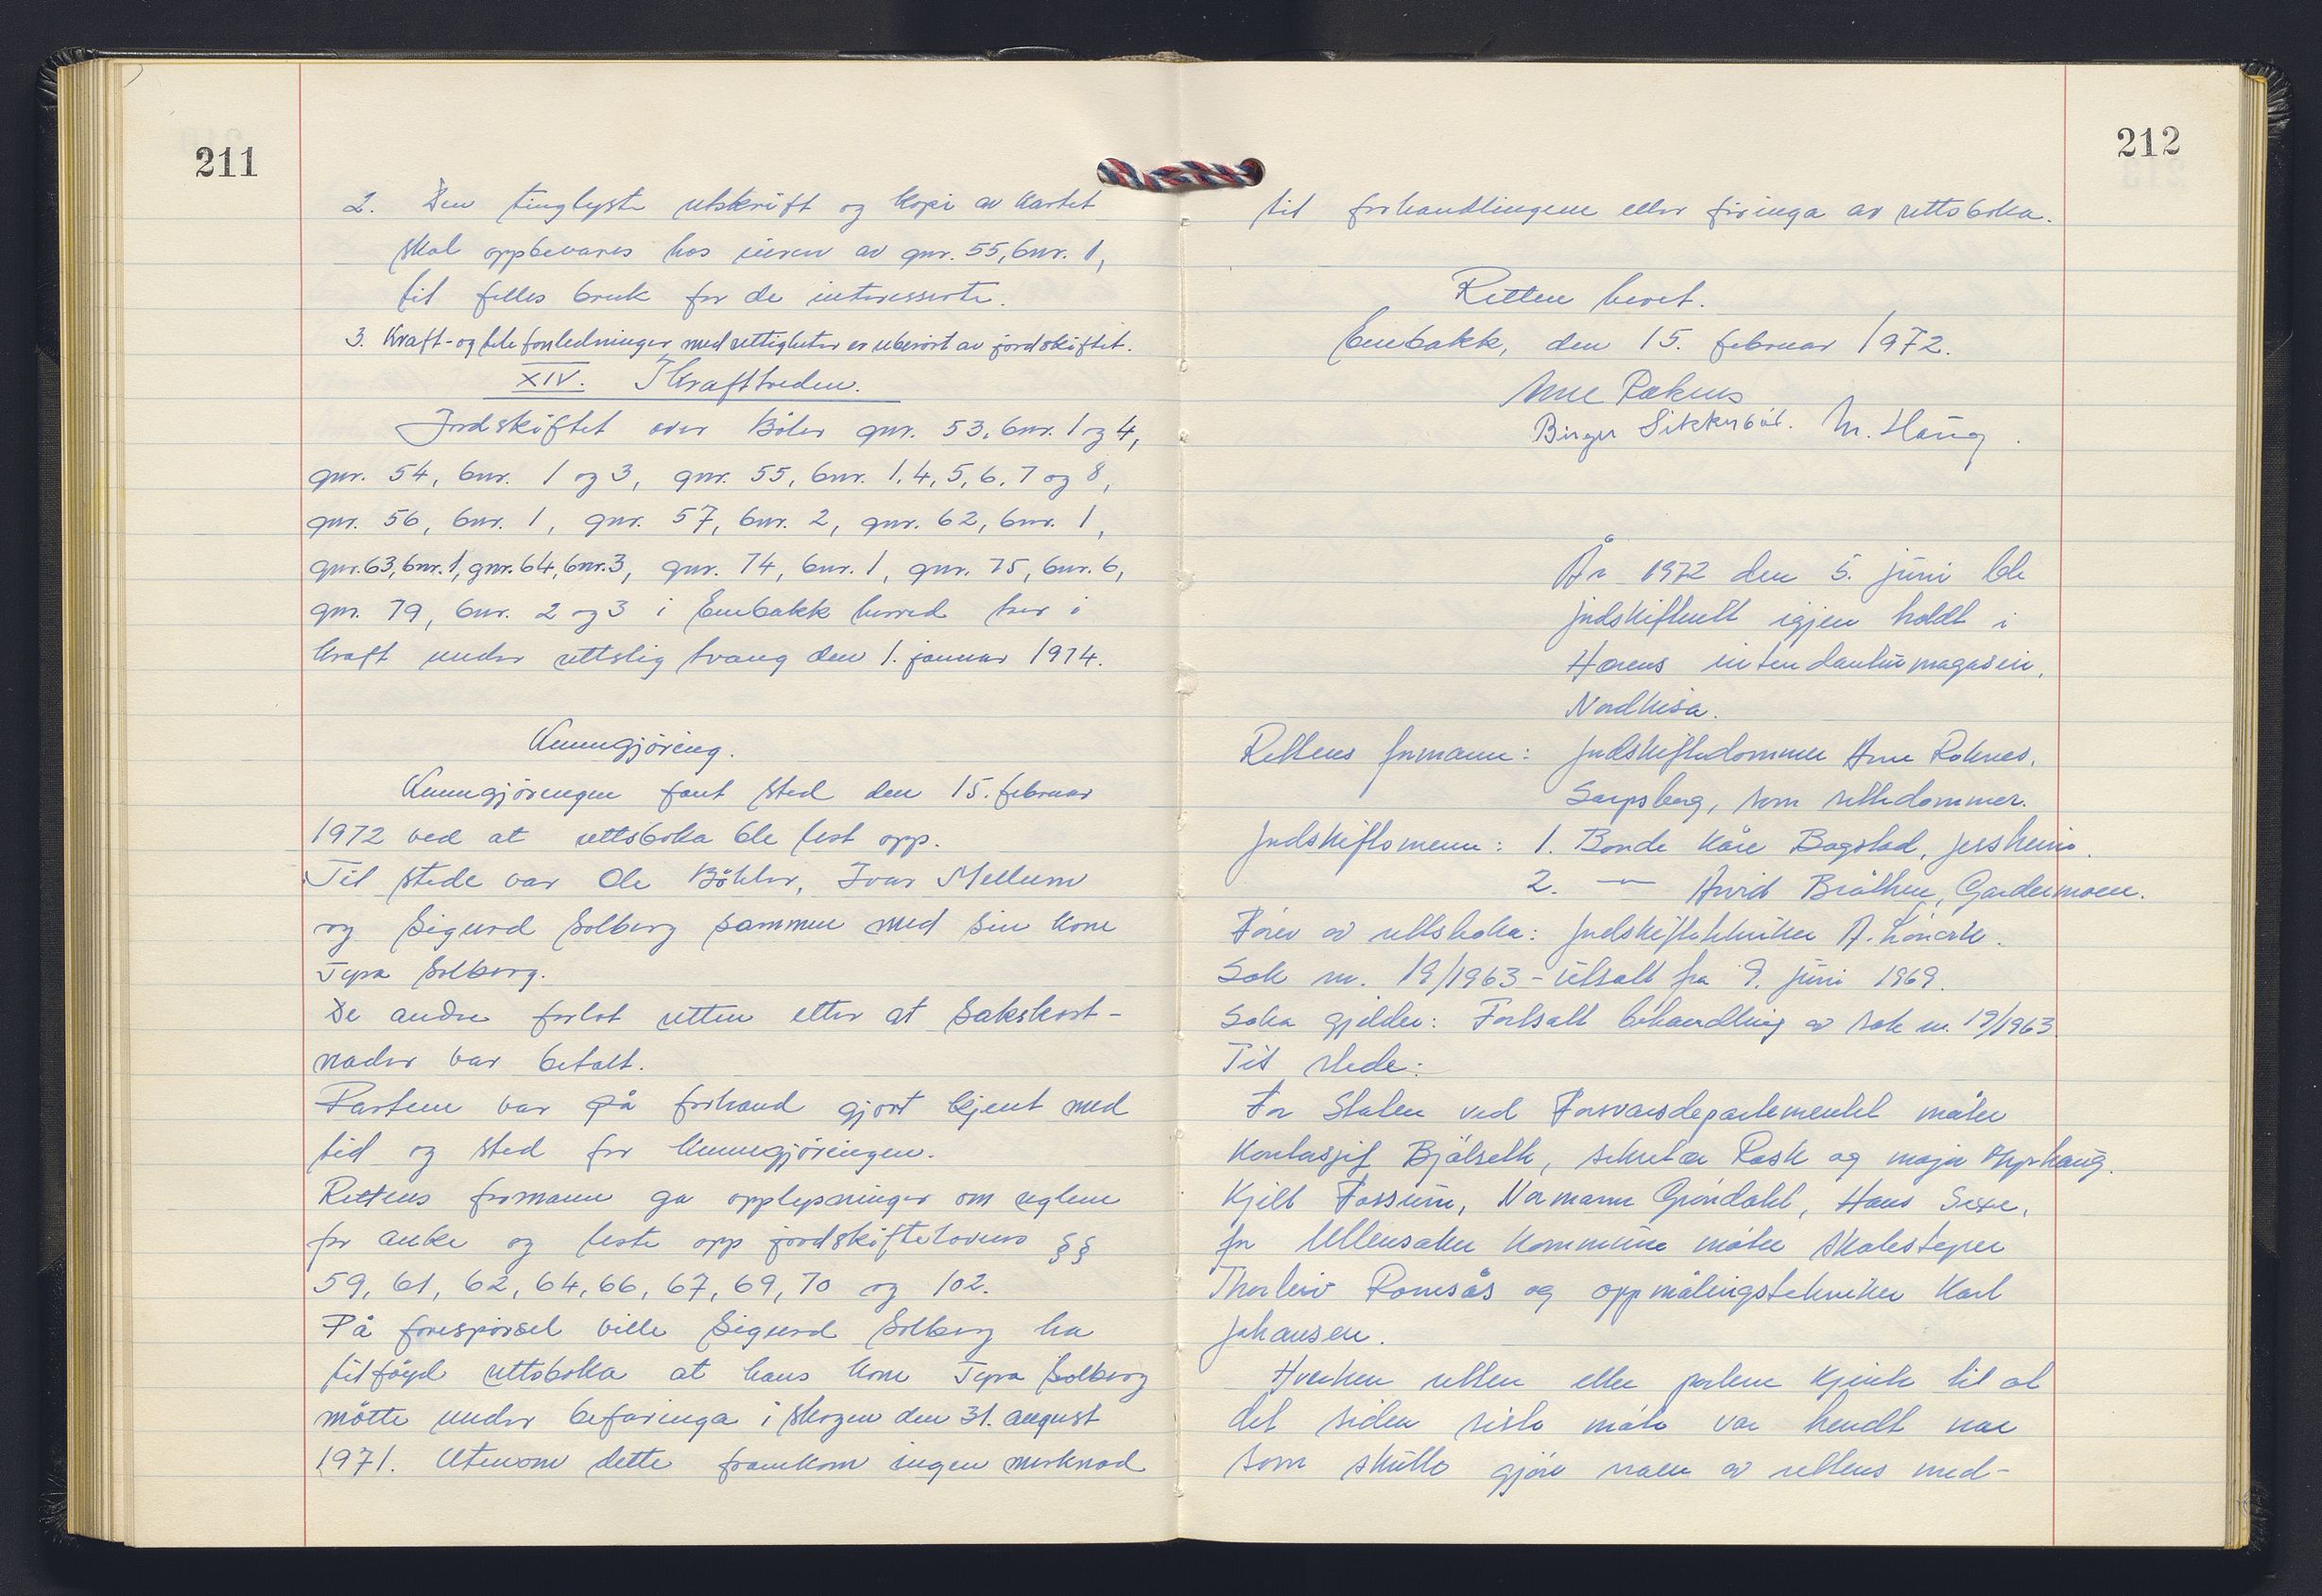 211
2. Den tinglyste utskrift og kopi av kartet
skal oppbevares hos eieren av gnr. 55, bnr. 1,
til felles bruk for de interesserte.
3. Kraft- og telefonledninger med rettigheter er uberørt av jordskiftet.
XIV. Ikrafttreden.
Jordskiftet over Böler gnr. 53, bnr. 1 og 4,
gnr. 54, bnr. 1 og 3, gnr. 55, bnr. 1, 4, 5, 6, 7 og 8,
gnr. 56, bnr. 1, gnr. 57, bnr. 2, gnr. 62, bnr. 1,
gnr. 63, bnr. 1, gnr. 64, bnr. 3, gnr. 74, bnr. 1, gnr. 75, bnr. 6,
gnr. 79, bnr. 2 og 3 i Enebakk herred trer i
kraft under rettslig tvang den 1. januar 1974.
Kunngjöring.
Kunngjöringen fant sted den 15. februar
1972 ved at rettsboka ble lest opp.
Til stede var Ole Böhler, Ivar Mellum
og Sigurd Solberg sammen med sin kone
Tyra Solberg.
De andre forlot retten etter at sakskost-
nader var betalt.
Partene var på forhand gjort kjent med
tid og sted for kunngjöringen.
Rettens formann ga opplysninger om reglene
for anke og leste opp jordskiftelovens §§
59, 61, 62, 64, 66, 67, 69, 70 og 102.
På forespörsel ville Sigurd Solberg ha
tilföyd rettsboka at hans kone Tyra Solberg
mötte under befaringa i skogen den 31. august
1971. Utenom dette framkom ingen merknad
212
til forhandlingene eller föringa av rettsboka.
Retten hevet.
Enebakk, den 15. februar 1972.
Arne Roknes
Birger Sikkerböl. M. Haug.
År 1972 den 5. juni ble
jordskifterett igjen holdt i
Hærens intendanturmagasin,
Nordkisa.
Rettens formann: Jordskiftedommer Arne Roknes,
Sarpsborg, som rettsdommer.
Jordskiftsmenn: 1. Bonde Kåre Bagstad, Jessheim.
2. — Arvid Bråthen, Gardermoen.
Förer av rettsboka: Jordskiftetekniker A.
Sak nr. 19/1963 - utsatt fra 9. juni 1969.
Saka gjelder: Fortsatt behandling av sak nr. 19/1963
Til stede:
For Staten ved Forsvarsdepartementet möter
Kontorsjef Bjölseth, sekretær Rask og major
Kjell Fossum, Normann Gröndahl, Hans Sexe,
for Ullensaker Kommune möter skatesteyer
Thorleiv Romsås og oppmålingstekniker Karl
Johansen.
Hverken retten eller partene kjente til at
det siden siste möte var hendt noe
som skulle gjöre noen av rettens med-